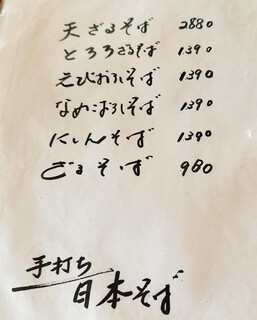 天ざるそば 2880
とろろざるそば 1390
えびおろしそば 1390
なめこおろしそば 1390
にしんそば 1390
ざるそば 980
手打ち
日本そば